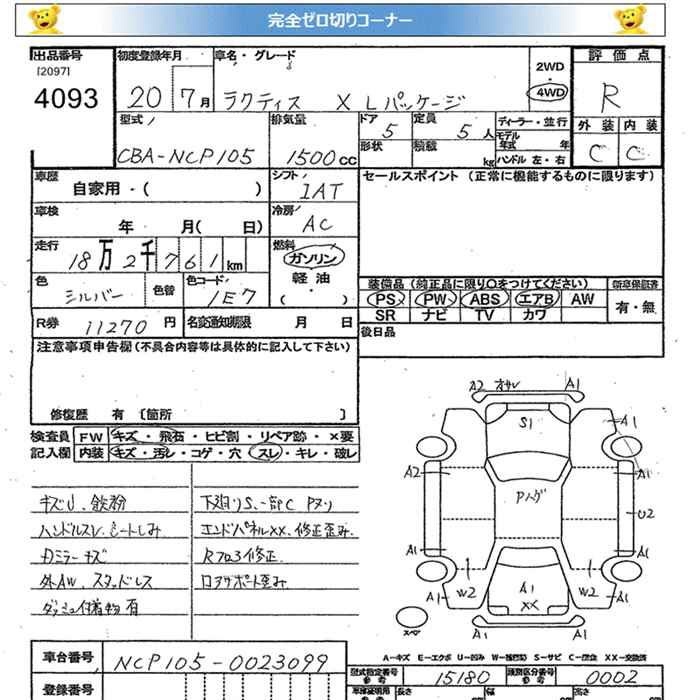 完全ゼロ切りコーナー
出品番号 初度登録年月 車名・グレード 2WD 評価点
[2097]
4093 20 7月 ラクティス X Lパッケージ 4WD R
型式 排気量 ドア 定員 ディーラー・並行 外装 内装
CBA-NCP105 1500cc 5 5人 モデル年式 年 C C
形状 積載 kg ハンドル 左・右
車歴 自家用・( ) シフト IAT セールスポイント (正常に機能するものに限ります)
車検 年 月( 日) 冷房 AC
走行 18万2千761km 燃料 ガソリン
軽油
( ・ )
色 シルバー 色替 色コード 1E7
装備品 (純正品に限り○をつけてください) 新車保証書
PS PW ABS エアB AW 有・無
SR ナビ TV カワ
R券 11270円 名変通知期限 月 日 後日品
注意事項申告欄(不具合内容等は具体的に記入して下さい)
修復歴 有 〔箇所 〕
検査員 FW キズ・飛石・ヒビ割・リペア跡・×要
記入欄 内装 キズ・汚レ・コゲ・穴・スレ・キレ・破レ
キズU、鉄粉 下廻りS、一部C Pヌリ
ハンドルスレ シートしみ エンドパネルXX、修正歪み
ミラーキズ Rフロア修正
外AW、スタッドレス ロアサポート歪み
ダッシュ付着物有
A2 オサレ A1
S1
A1
A2
Pハゲ
A1
U2
A1
A1
W2
A1
XX
W2
A1
A1
A1
スペア
A-キズ E-エクボ U-凹み W-補修跡 S-サビ C-腐食 XX-交換済
車台番号 NCP105-0023099
型式指定番号 参考 15180 類別区分番号 参考 0002
登録番号
車検証明用 参考 長さ 幅 高さ